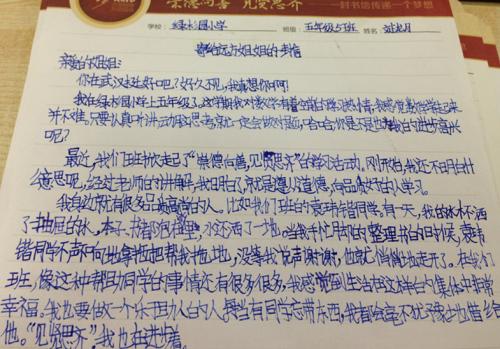 崇德向善 见贤思齐
一封书信传递一个梦想
学校：绿水园小学 班级：五年级5班 姓名
寄给远方姐姐的书信
亲爱的姐姐：
你在武汉过好吧？好久不见，我真想你啊！
我在绿水园小学上五年级了，这学期我对数学有着空前的学习热情，我感觉数学学起来
并不难。只要认真听讲，动脑思考就一定会做对题，哈哈，你是不是也为我的进步高兴
呢？
最近，我们班掀起了“崇德向善，见贤思齐”的学习活动。刚开始，我还不明白什
么意思呢，经过老师的讲解，我明白了就是遵从道德，向品德好的人学习。
我身边就有很多品德高尚的人。比如我们班的袁玮锴同学，有一天，我的水杯洒
了抽屉的水，本子、书都泡在里，水还洒了一地，当我手忙月却的整理书的时候，袁玮
锴同学不声不向地拿拖把帮我拖地，没等我说声谢谢，他就悄悄地走开了。在我们
班，像这种帮助同学的事情还有很多很多，我感觉到生活在这样的集体中非常
幸福。我也要做一个乐于助人的人，当有同学忘带东西，我都会毫不犹豫地借给
他。“见贤思齐”我也在进步着。